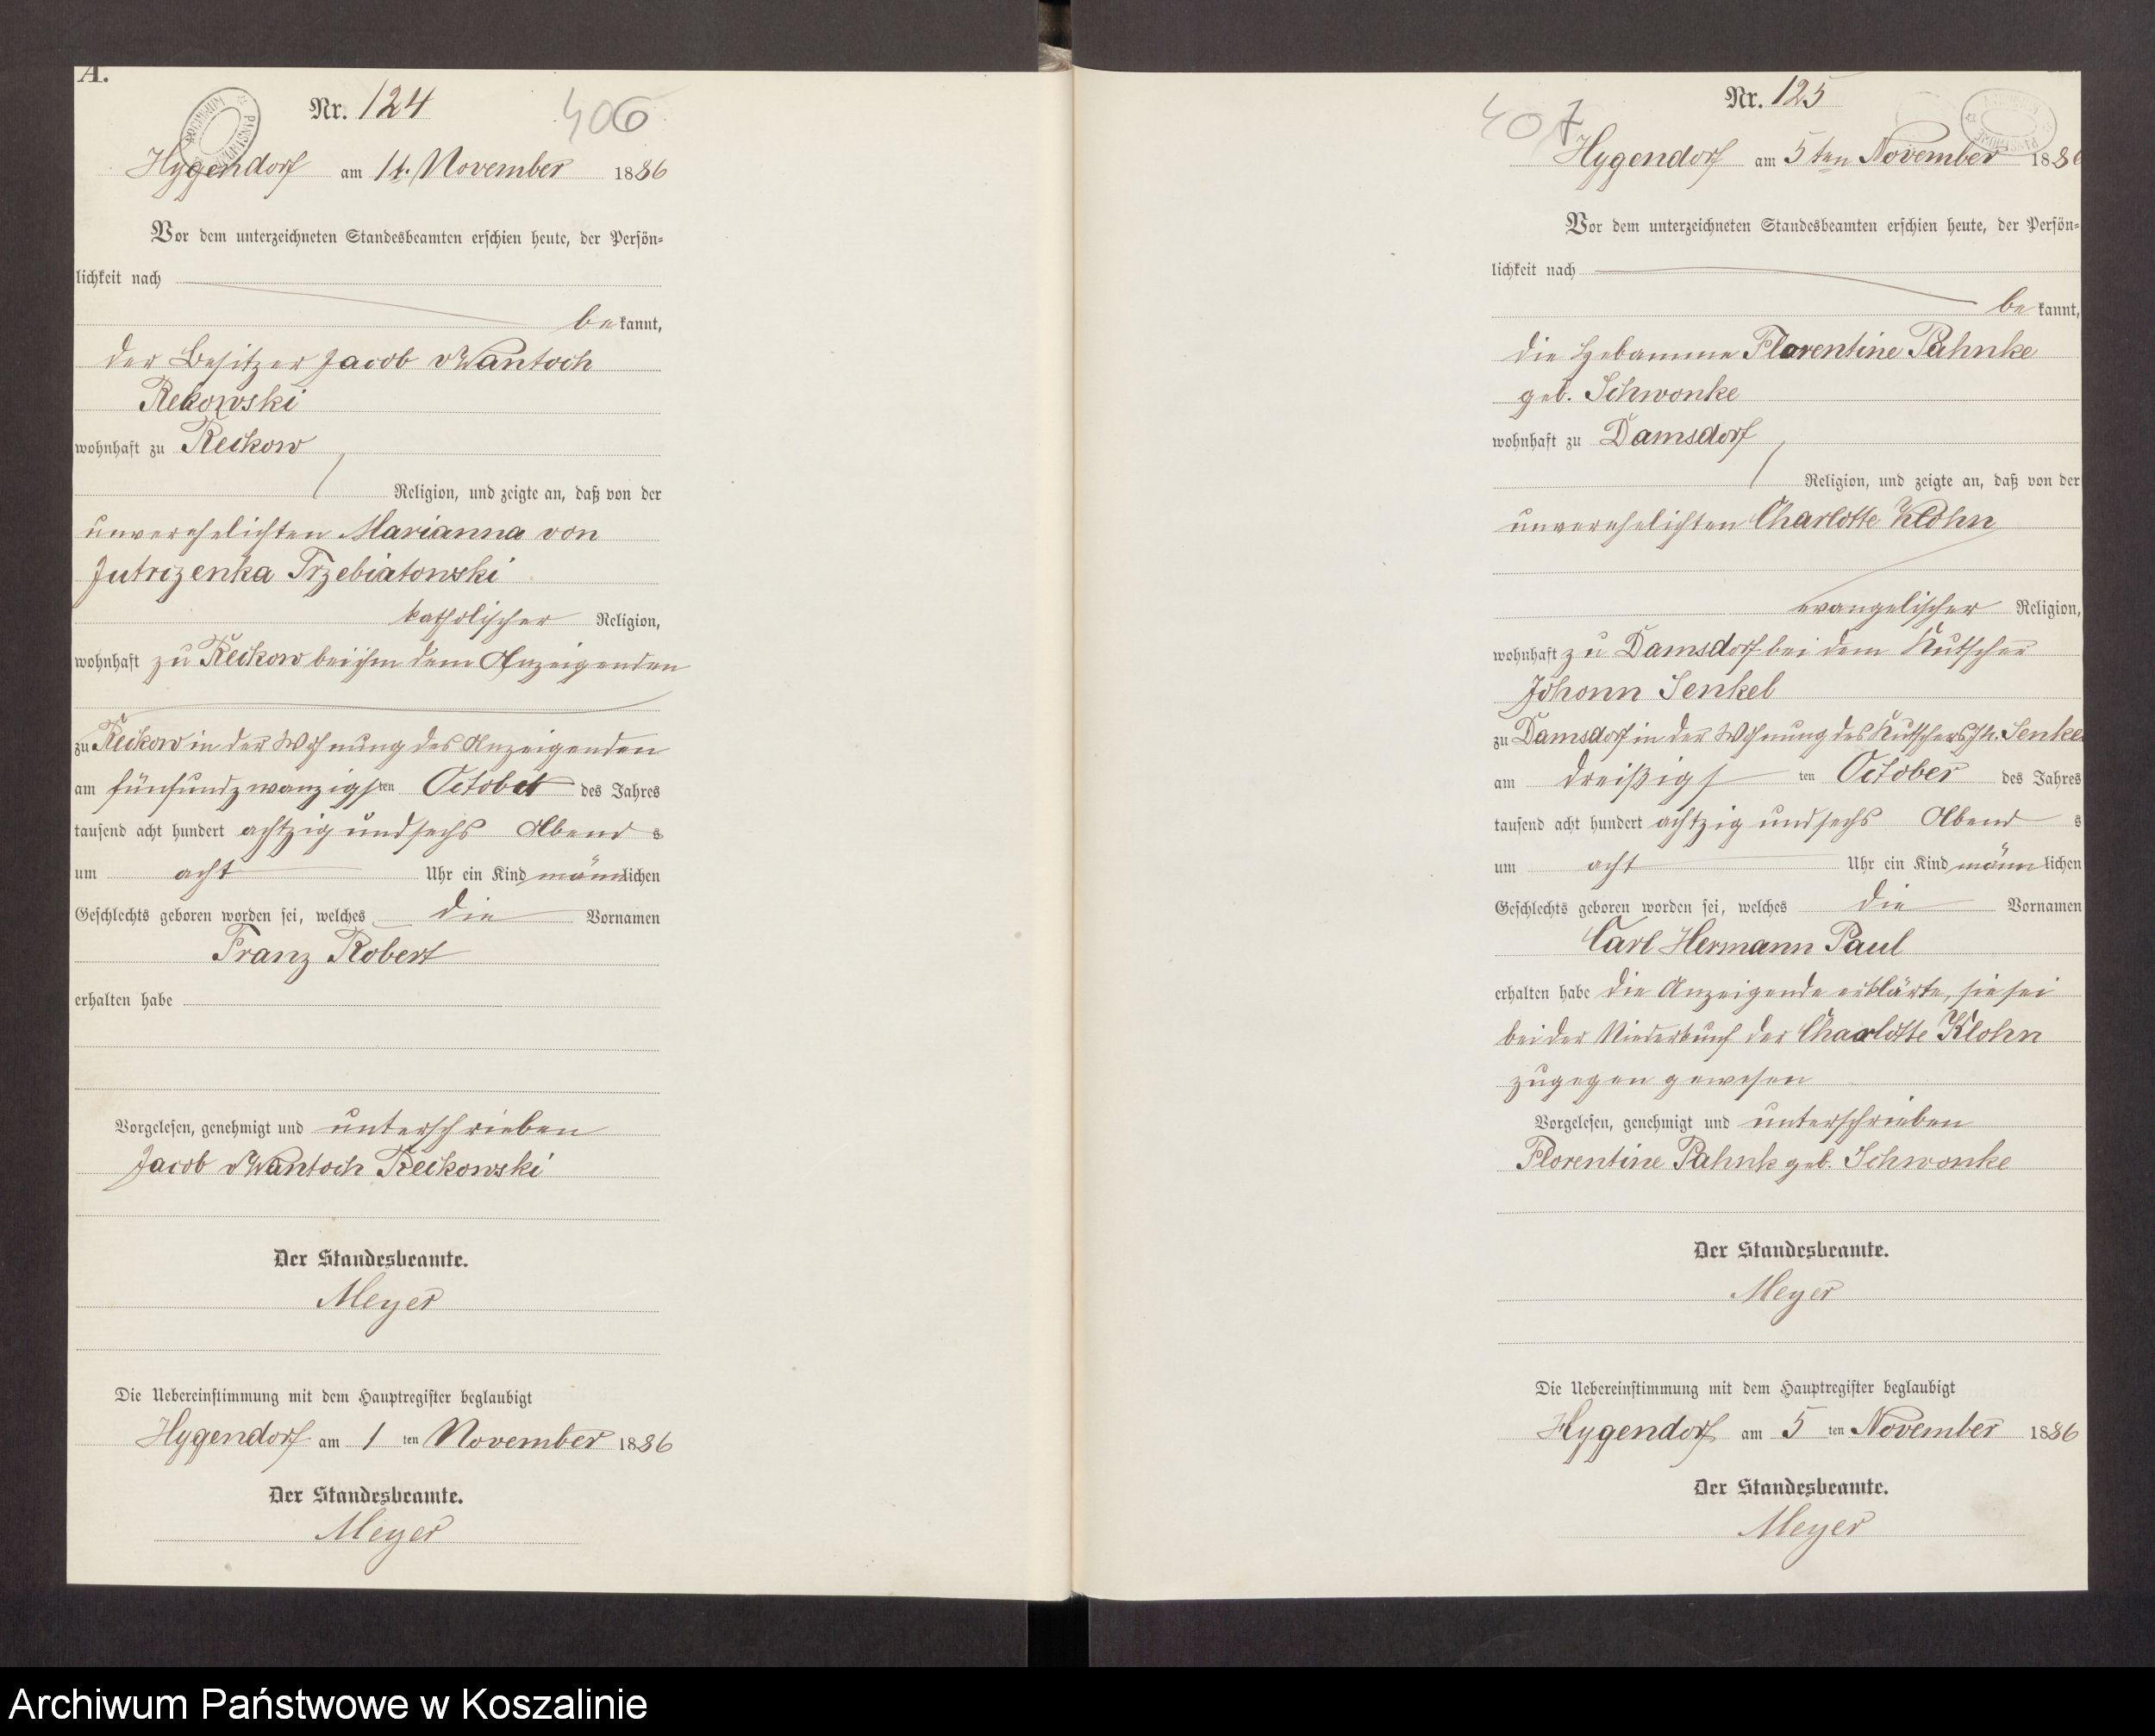 A.
Nr. 124
406
Hygendorf am 1t. November 1886
Vor dem unterzeichneten Standesbeamten erschien heute, der Persön=
lichkeit nach
be kannt,
der Besitzer Jacob v Wantoch
Rekowski
wohnhaft zu Reckow
Religion, und zeigte an, daß von der
unverehelichten Marianna von
Jutrzenka Trzebiatowski
katholischer Religion,
wohnhaft zu Reckow bei ihm dem Anzeigenden
zu Reckow in der Wohnung des Anzeigenden
am fünfundzwanzigsten October des Jahres
tausend acht hundert achtzig und sechs Abend s
um acht Uhr ein Kind männlichen
Geschlechts geboren worden sei, welches die Vornamen
Franz Robert
erhalten habe
Vorgelesen, genehmigt und unterschrieben
Jacob v Wantoch Reckowski
Der Standesbeamte.
Meyer
Die Uebereinstimmung mit dem Hauptregister beglaubigt
Hygendorf am 1 ten November 1886
Der Standesbeamte.
Meyer
Nr. 125
407
Hygendorf am 5 ten November 1886
Vor dem unterzeichneten Standesbeamten erschien heute, der Persön=
lichkeit nach
be kannt,
die Hebamme Florentine Pahnke
geb. Schwonke
wohnhaft zu Damsdorf
Religion, und zeigte an, daß von der
unverehelichten Charlotte Klohn
evangelischer Religion,
wohnhaft zu Damsdorf bei dem Kutscher
Johann Senkel
zu Damsdorf in der Wohnung des Kutschers Joh. Senkel
am dreißigs ten October des Jahres
tausend acht hundert achtzig und sechs Abend s
um acht Uhr ein Kind männlichen
Geschlechts geboren worden sei, welches die Vornamen
Carl Hermann Paul
erhalten habe die Anzeigende erklärte, sie sei
bei der Niederkunf der Charlotte Klohn
zugegen gewesen
Vorgelesen, genehmigt und unterschrieben
Florentine Pahnk geb. Schwonke
Der Standesbeamte.
Meyer
Die Uebereinstimmung mit dem Hauptregister beglaubigt
Hygendorf am 5 ten November 1886
Der Standesbeamte.
Meyer
Archiwum Państwowe w Koszalinie